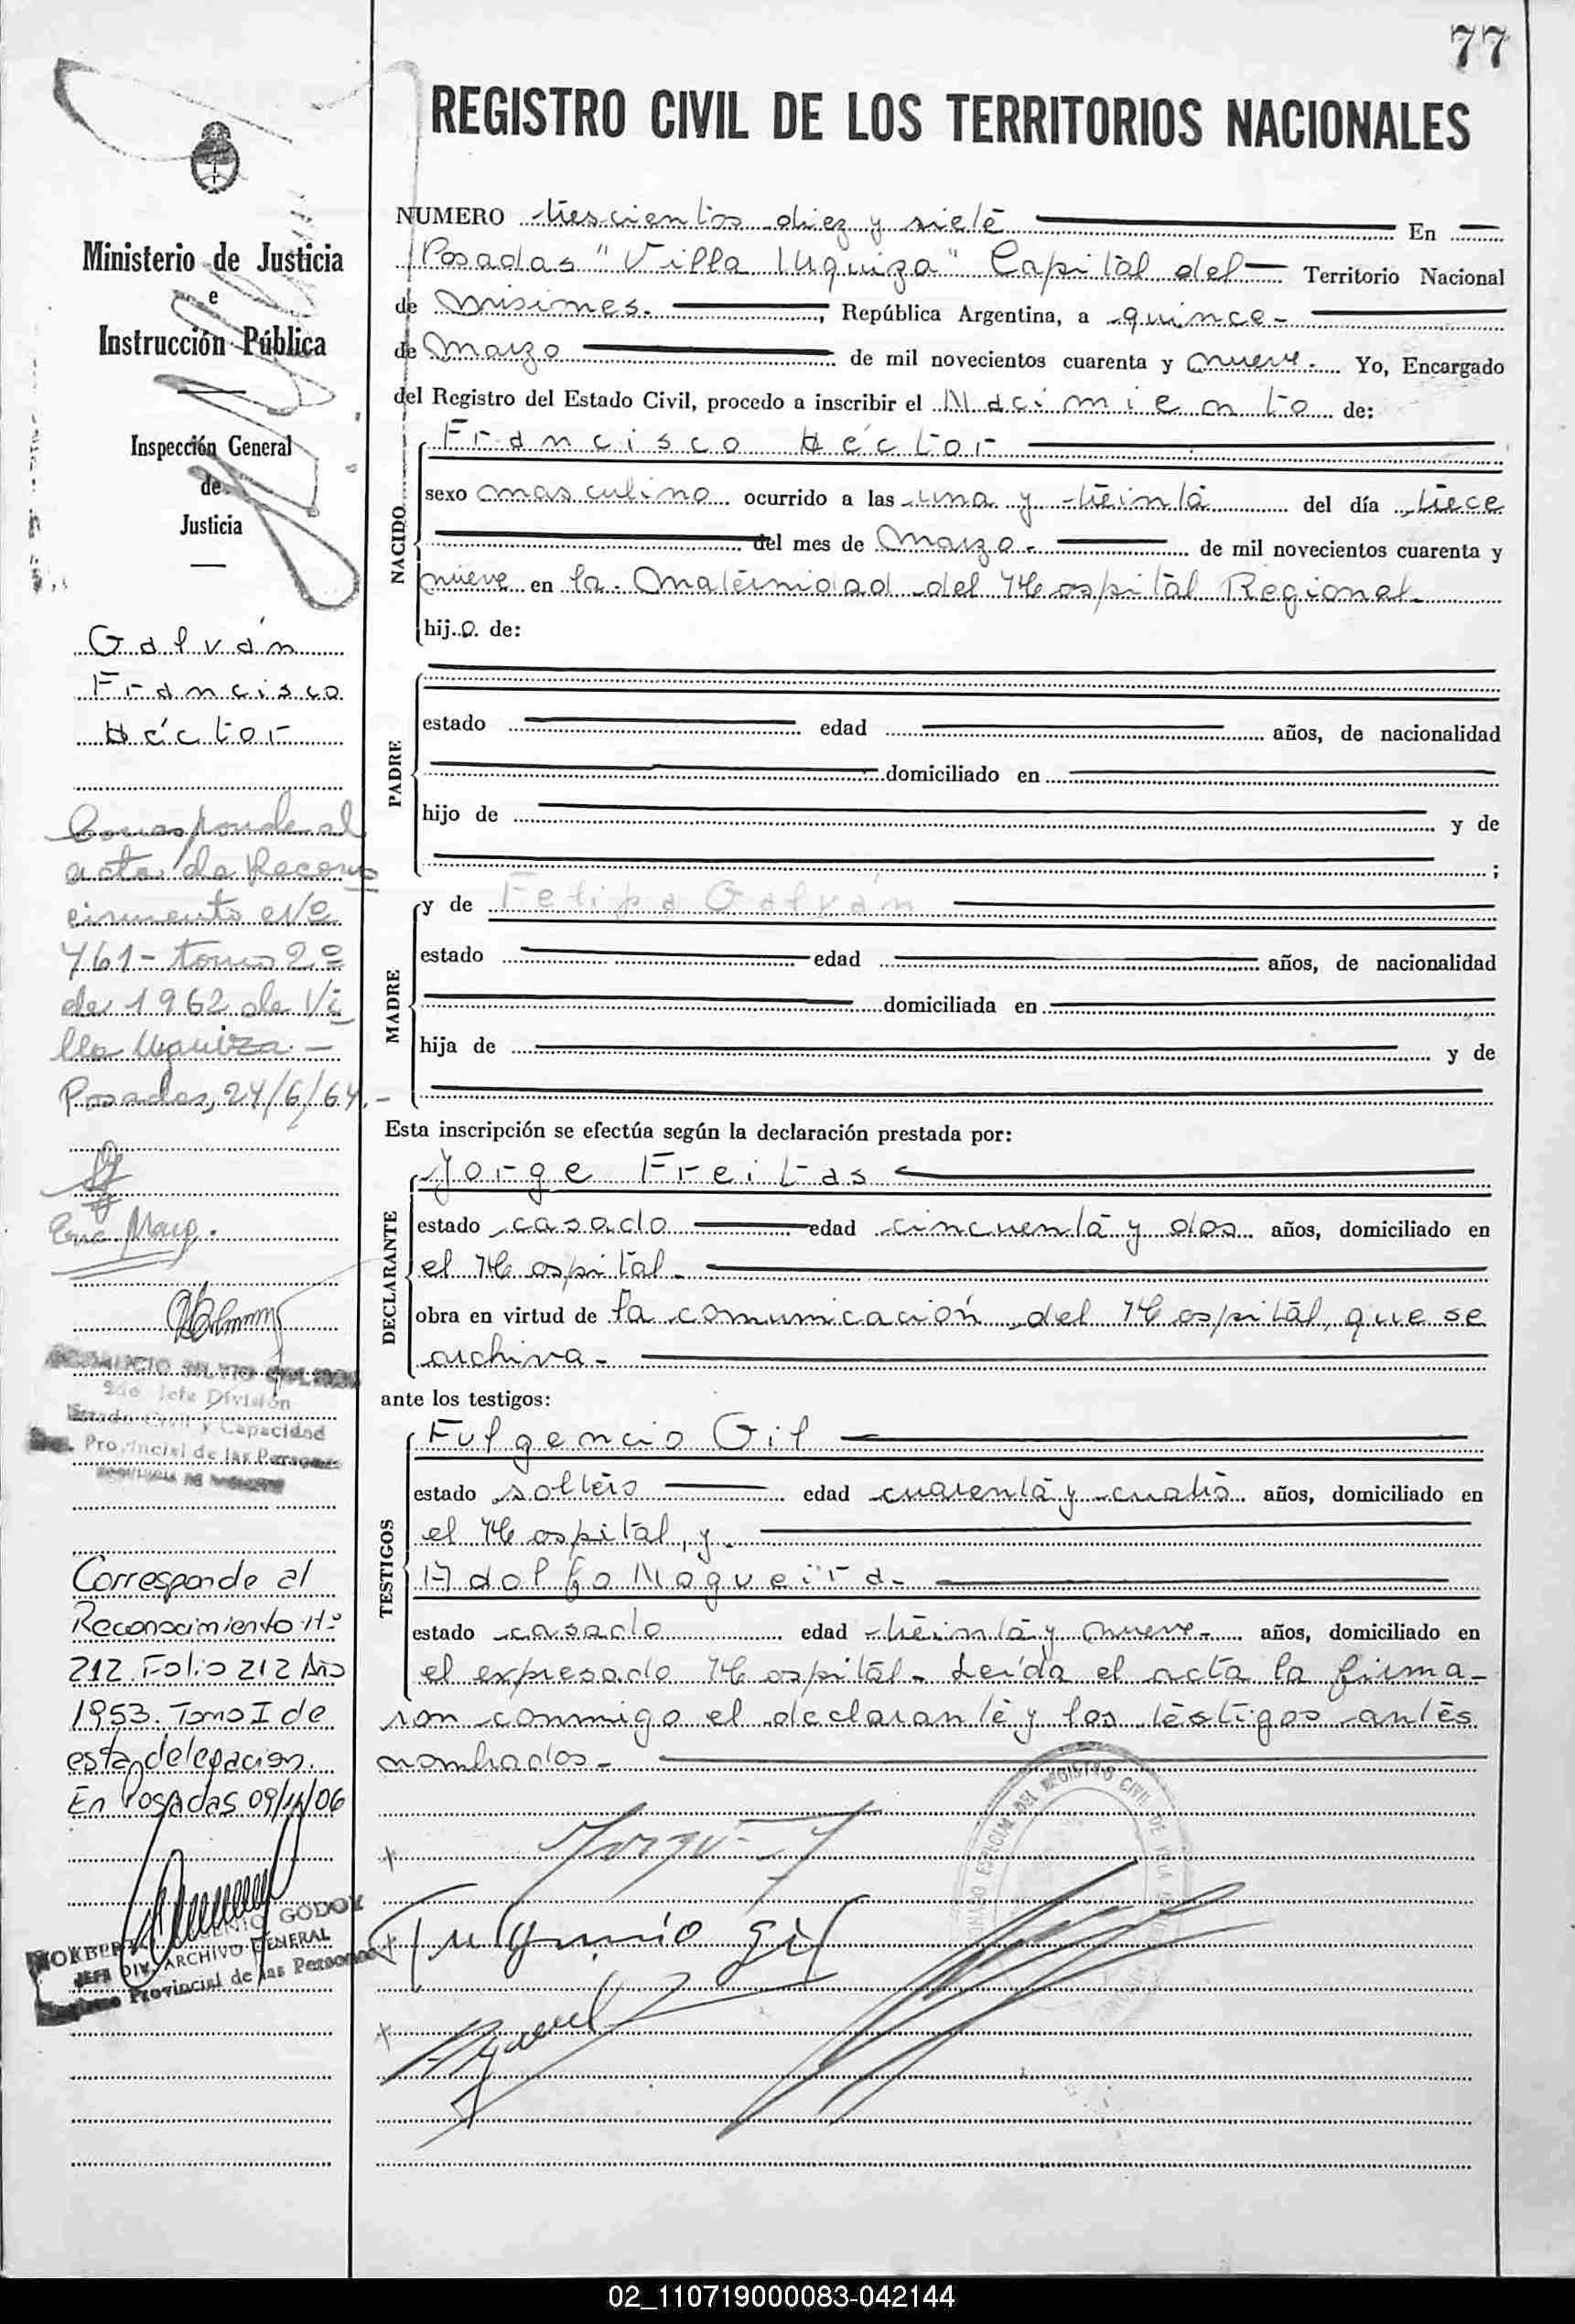 77
REGISTRO CIVIL DE LOS TERRITORIOS NACIONALES
Ministerio de Justicia
e
Instrucción Pública
Inspección General
de
Justicia
Galván
Francisco
Héctor
Corresponde al
acta de Recono
cimiento Nº
761- tomo 2º
de 1962 de Vi
lla Urquiza.-
Posadas, 24/6/64.-
2do Jefe División
Estado Civil y Capacidad
Provincial de las Personas
Corresponde al
Reconocimiento Nº
212. Folio 212 Año
1953. Tomo I de
esta delegacion.
En Posadas 09/11/06
GODOY
JEFE DIV. ARCHIVO GENERAL
Provincial de las Personas
NUMERO trescientos diez y siete En
Posadas "Villa Urquiza" Capital del Territorio Nacional
de Misiones. , República Argentina, a quince-
de Marzo de mil novecientos cuarenta y nueve. Yo, Encargado
del Registro del Estado Civil, procedo a inscribir el Nacimiento de:
NACIDO
Francisco Héctor
sexo masculino ocurrido a las una y treinta del día trece
del mes de Marzo. de mil novecientos cuarenta y
nueve en la Maternidad del Hospital Regional.
hijo de:
PADRE
estado edad años, de nacionalidad
domiciliado en
hijo de y de
;
MADRE
y de Felipa Galván
estado edad años, de nacionalidad
domiciliada en
hija de y de
Esta inscripción se efectúa según la declaración prestada por:
DECLARANTE
Jorge Freitas
estado casado edad cincuenta y dos años, domiciliado en
el Hospital.
obra en virtud de la comunicación del Hospital, que se
archiva-
ante los testigos:
TESTIGOS
Fulgencio Gil
estado soltero edad cuarenta y cuatro años, domiciliado en
el Hospital, y
Adolfo Nogueira-
estado casado edad treinta y nueve- años, domiciliado en
el expresado Hospital- Leída el acta la firma-
ron conmigo el declarante y los testigos antes
nombrados-
Jorge F
Fulgencio Gil
REGISTRO CIVIL DE
02_110719000083-042144